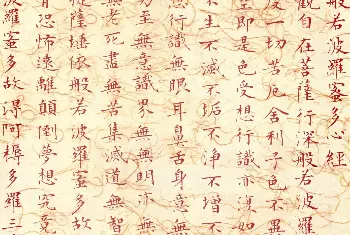 般若波羅蜜多心經
觀自在菩薩行深般若波羅
度一切苦厄舍利子色不異
空即是色受想行識亦復如
不生不滅不垢不淨不增不
無行識無眼耳鼻舌身意無
乃至無意識界無無明亦無
無老死盡無苦集滅道無智
提薩埵依般若波羅蜜多故
有恐怖遠離顛倒夢想究竟
波羅蜜多故得阿耨多羅三